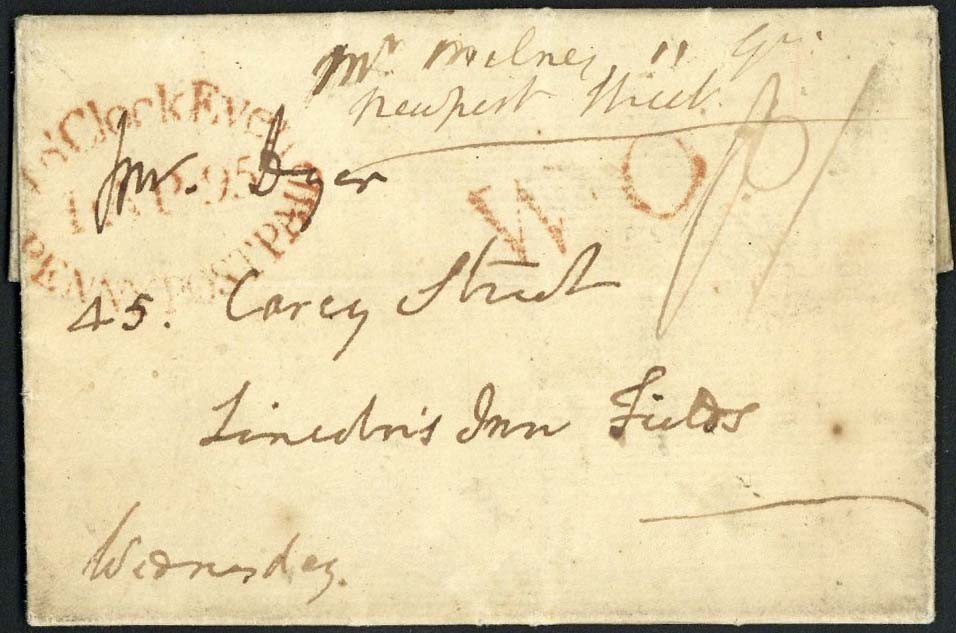 Mr Milnes 11 Gt
Newport Street
o'Clock Even
95
PENNY POST PAID
Mr. Dyer
W O
45. Carey Street
Lincoln's Inn Fields
Wednesday.